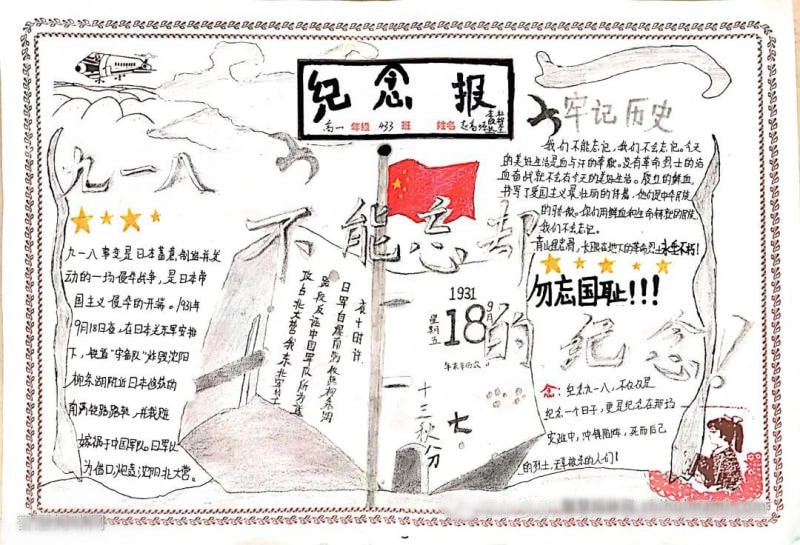 纪念报
高一 年级 433 班 姓名
九一八
九一八事变是日本蓄意制造并发
动的一场侵华战争，是日本帝
国主义侵华的开端。1931年
9月18日夜，在日本关东军安排
下，铁道"守备队"炸毁沈阳
柳条湖附近日本修筑的
南满铁路路轨，并栽赃
嫁祸于中国军队。日军以
为借口，炮轰沈阳北大营。
不能忘却
的纪念！
夜十时许
日军自爆南满铁路柳条湖
路段反诬中国军队所为遂
攻占北大营我东北军将士
1931
9月
18
星期五
十三
秋分
七
牢记历史
我们不能忘记，我们不会忘记。今天
的美好生活是血与汗的奉献。没有革命烈士的浴
血奋战就不会有今天的美好生活。殷红的鲜血，
书写了爱国主义最壮丽的诗卷，他们是中华民族
的骄傲。你们用鲜血和生命
我们不会忘记。
青山埋忠骨，长眠在地下的革命烈士永垂不朽！
勿忘国耻！！！
念：纪念九一八，不仅仅是
纪念一个日子，更是纪念在那场
灾难中，冲锋陷阵，死而后已
的烈士，无辜被杀的人们！